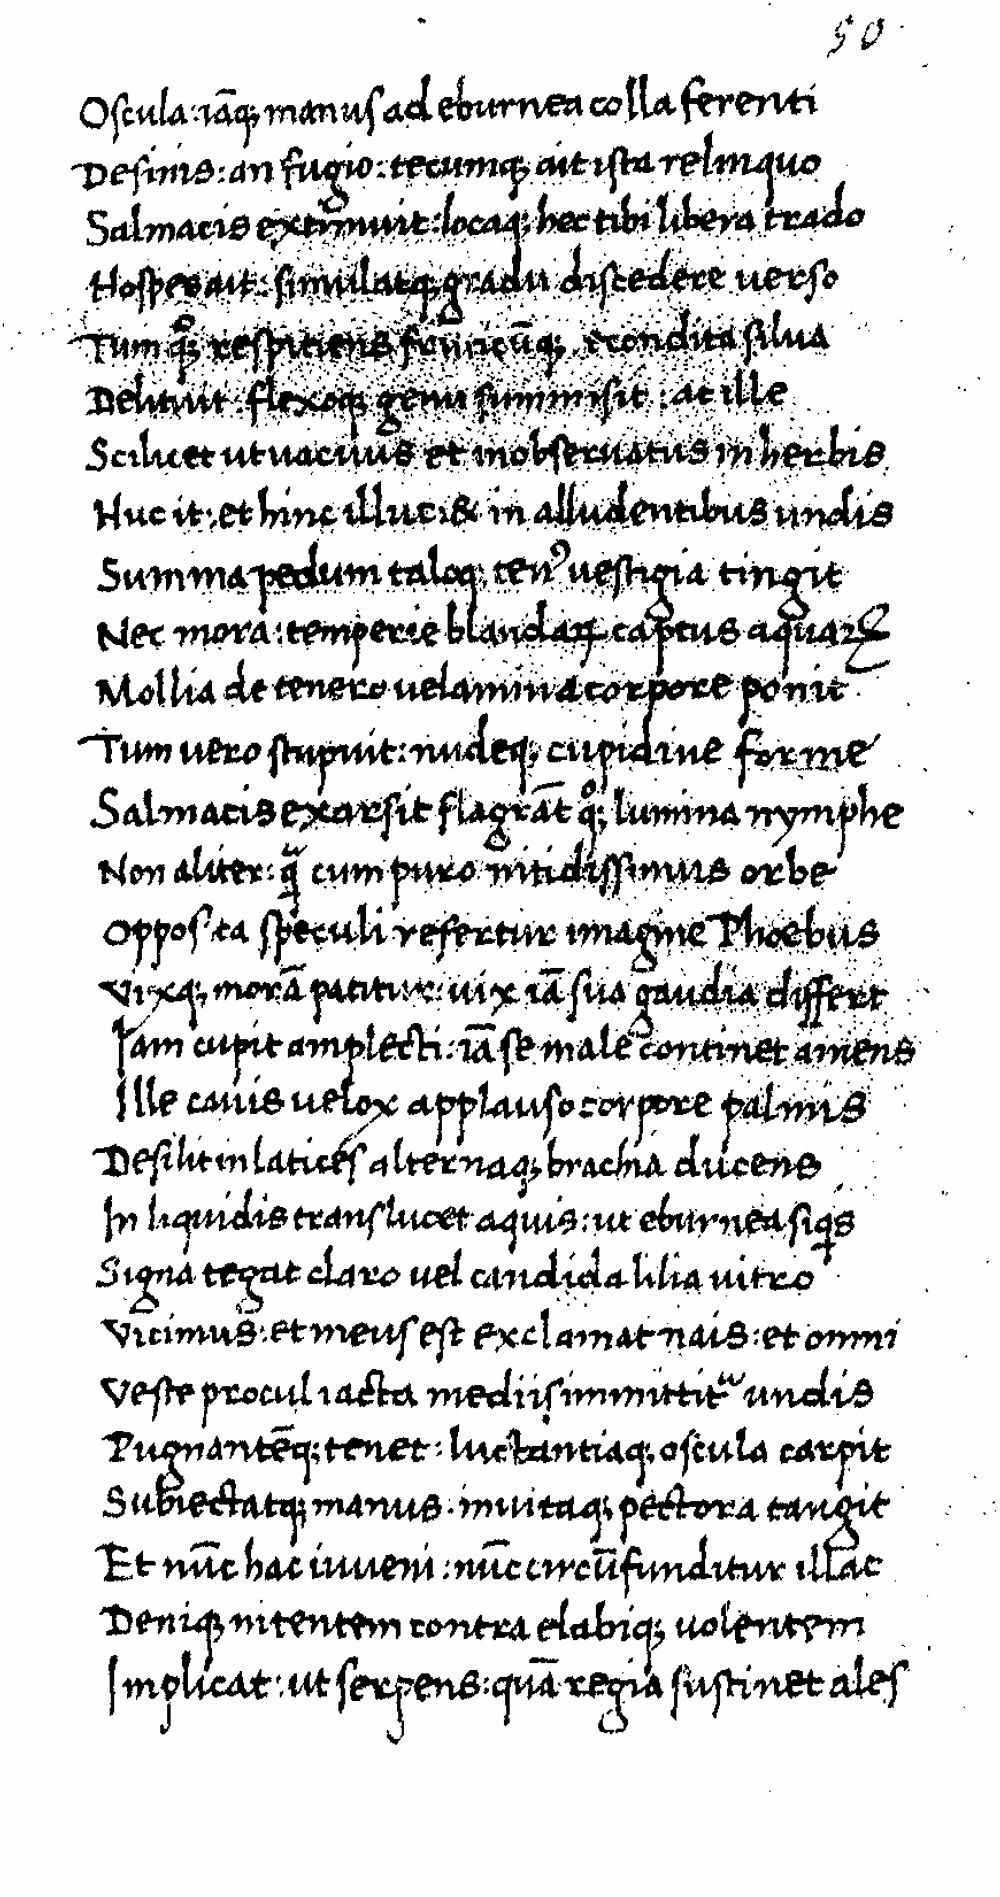 50
Oscula: iāq; manus ad eburnea colla ferenti
Desinis: an fugio: tecumq; ait ista relinquo
Salmacis extimuit: locaq; hec tibi libera trado
Hospes ait: simulatq; gradu discedere verso
Tum qͦ; respitiens fruticūq; recondita silua
Delituit: flexoq; genu summisit: at ille
Scilicet ut vacuus et inobservatus in herbis
Huc it: et hinc illuc: & in alludentibus undis
Summa pedum taloq; tenꝰ vestigia tingit
Nec mora: temperie blandaꝝ captus aquaꝝ
Mollia de tenero velamina corpore ponit
Tum vero stupuit: nudeq; cupidine forme
Salmacis exarsit flagrāt qͦ; lumina nymphe
Non aliter: qᷓ cum puro nitidissimus orbe
Opposita speculi refertur imagine Phoebus
Vixq; morā patitur: vix iā sua gaudia differt
Iam cupit amplecti: iā se male continet amens
Ille cavis velox applauso corpore palmis
Desilit in latices alternaq; brachia ducens
In liquidis translucet aquis: ut eburnea siqs
Signa tegat claro vel candida lilia vitro
Vicimus: et meus est exclamat nais: et omni
Veste procul iacta mediis immittitᷓ undis
Pugnantēq; tenet: luctantiaq; oscula carpit
Subiectatq; manus: invitaq; pectora tangit
Et nūc hac iuveni: nūc circūfunditur illac
Deniq; nitentem contra elabiq; volentem
Implicat: ut serpens: quā regia sustinet ales